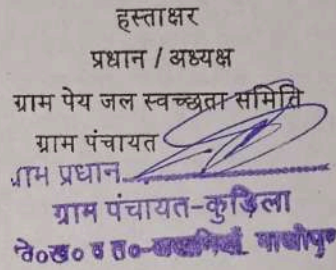 हस्ताक्षर
प्रधान / अध्यक्ष
ग्राम पेय जल स्वच्छता समिति
ग्राम पंचायत
ग्राम प्रधान
ग्राम पंचायत-कुड़िला
वि०ख० व त०-